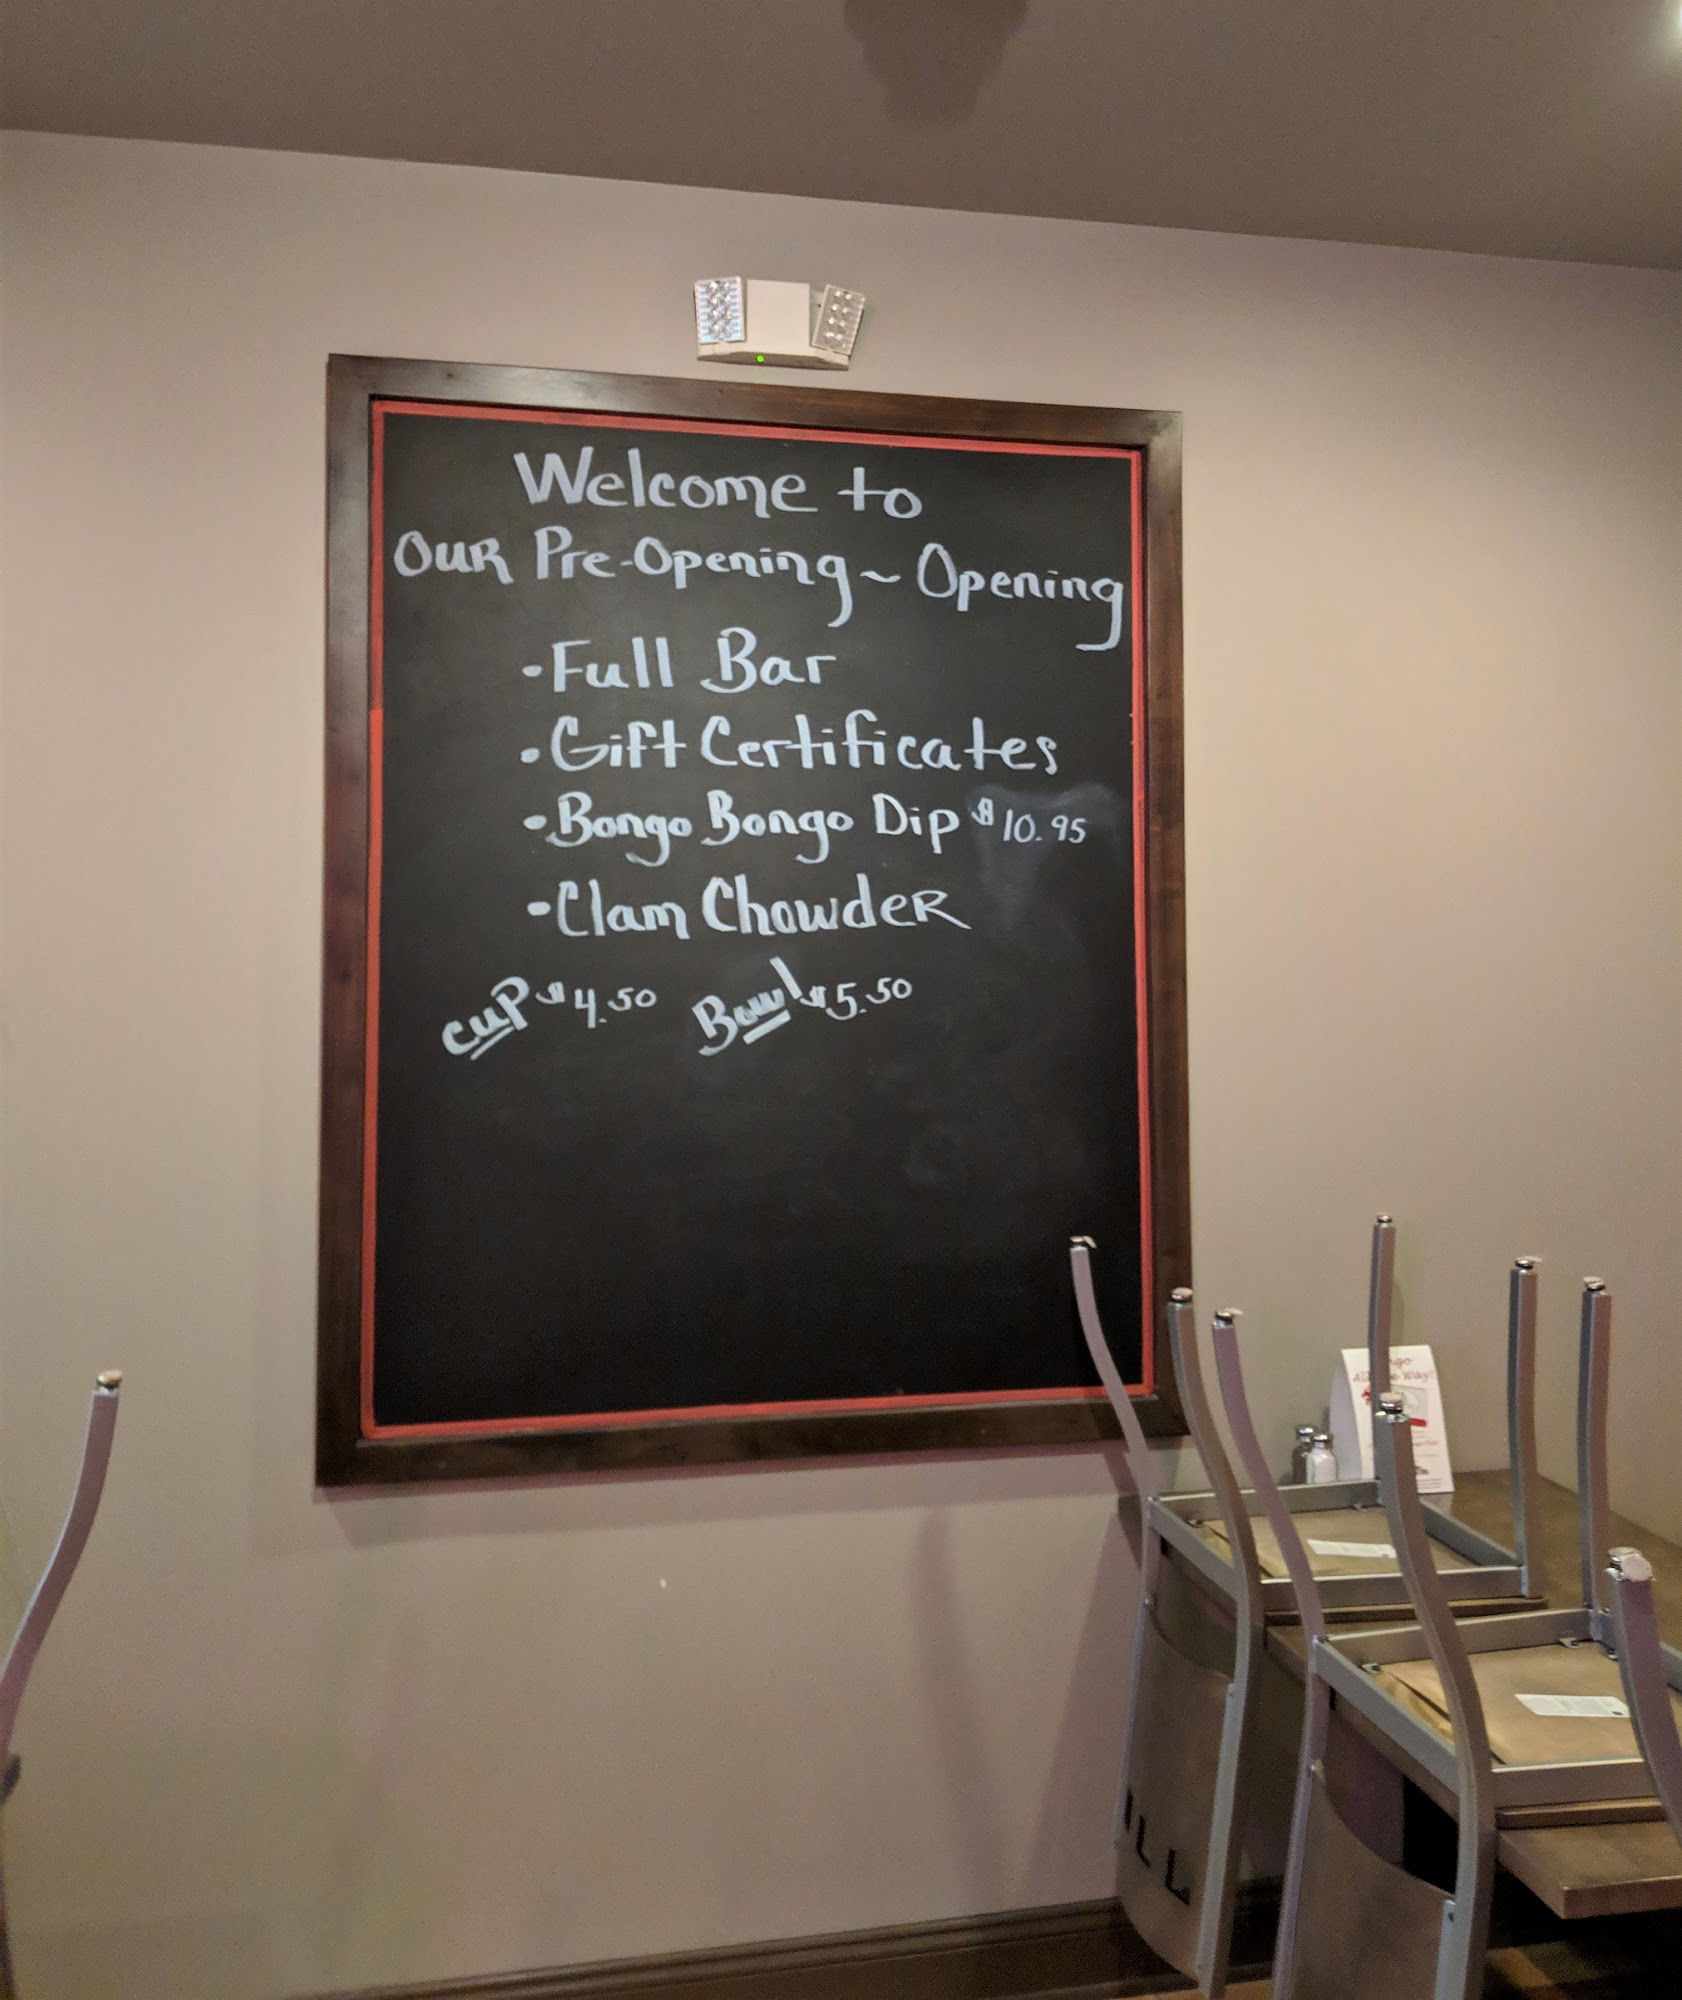 Welcome to
OUR Pre-Opening ~ Opening
• Full Bar
• Gift Certificates
• Bongo Bongo Dip $10.95
• Clam Chowder
Cup $4.50 Bowl $5.50
Way!